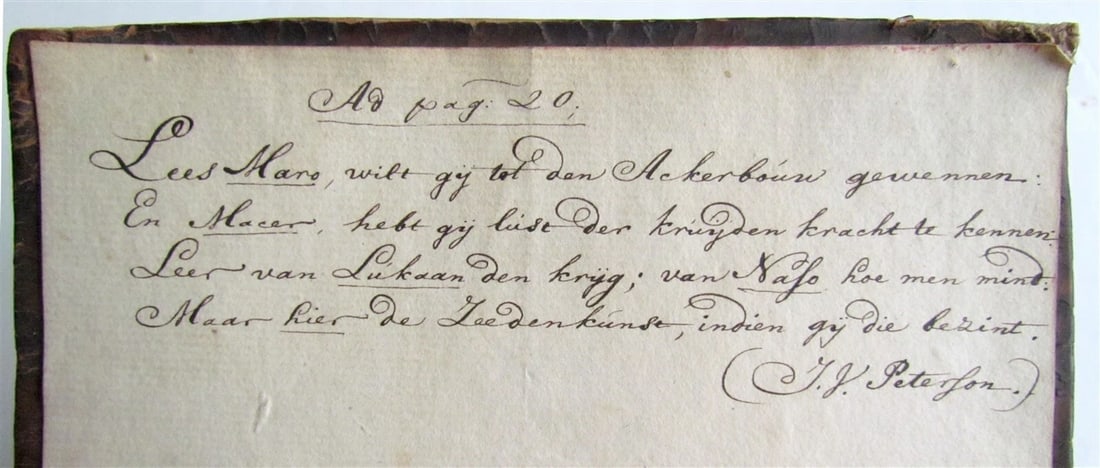 Ad pag: 20;
Lees Maro, wilt gij tot den Ackerbóúw gewennen:
En Macer, hebt gij lúst der krúijden kracht te kennen:
Leer van Lukaan den krijg; van Naso hoe men mind:
Maar hier de Zeedenkúnst, indien gij die bezint.
(J. J. Peterson.)